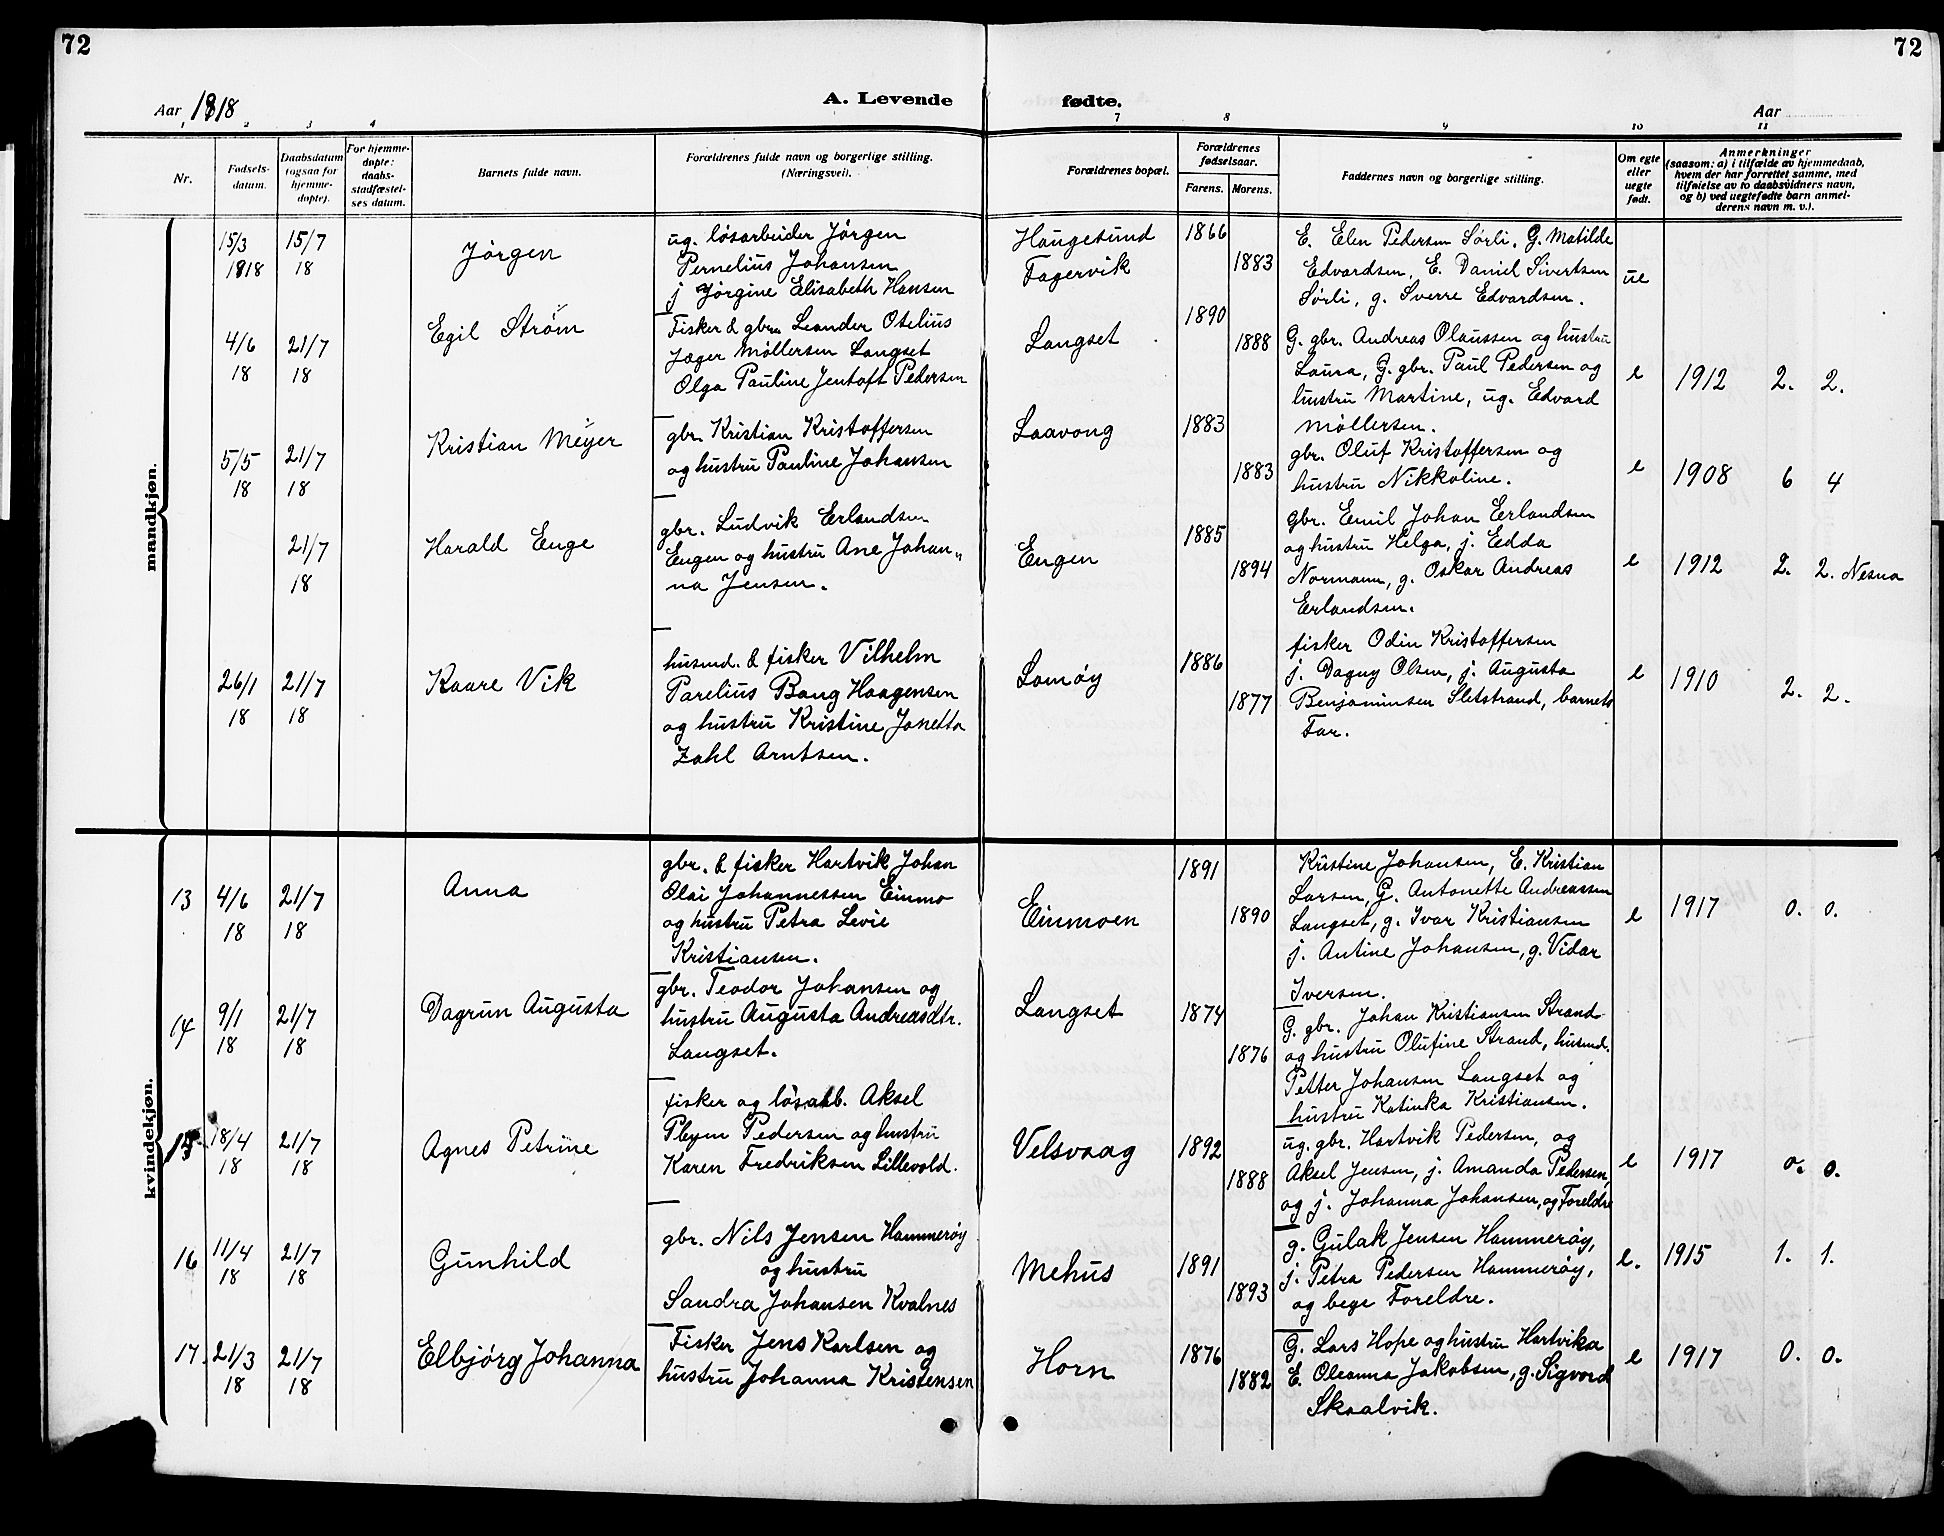 72
72
Aar 1918
A. Levende fødte.
Aar
1 2 3 4 7 8 9 10 11
Nr.
Fødsels-
datum.
Daabsdatum
(ogsaa for
hjemme-
døpte).
For hjemme-
døpte:
daabs-
stadfæstel-
ses datum.
Barnets fulde navn.
Forældrenes fulde navn og borgerlige stilling.
(Næringsvei).
Forældrenes bopæl.
Forældrenes
fødselsaar.
Farens.
Morens.
Faddernes navn og borgerlige stilling.
Om egte
eller
uegte
født.
Anmerkninger
(saasom: a) i tilfælde av hjemmedaab,
hvem der har forrettet samme, med
tilføielse av to daabsvidners navn,
og b) ved uegtefødte barn anmel-
derens navn m. v.).
mandkjøn.
15/3
1918
15/7
18
Jørgen
ug. løsarbeider Jørgen
Pernelius Johansen
j Jørgine Elisabeth Hansen
Haugesund
Fagervik
1866
1883
E. Elen Pedersen Sørli, G. Matilde
Edvardsen, E. Daniel Sivertsen
Sørli, g. Sverre Edvardsen.
ue
4/6
18
21/7
18
Egil Strøm
Fisker & gbr. Leander Otelius
Jæger Møllersen Langset
Olga Pauline Jentoft Pedersen
Langset
1890
1888
G. gbr. Andreas Olaussen og hustru
Laura, G. gbr. Paul Pedersen og
hustru Martine, ug. Edvard
Møllersen.
e
1912 2. 2.
5/5
18
21/7
18
Kristian Meyer
gbr. Kristian Kristoffersen
og hustru Pauline Johansen
Laavong
1883
1883
gbr. Oluf Kristoffersen og
hustru Nikkoline.
e
1908 6 4
21/7
18
Harald Enge
gbr. Ludvik Erlandsen
Engen og hustru Ane Johan„
na Jensen.
Engen
1885
1894
gbr. Emil Johan Erlandsen
og hustru Helga, j. Edda
Normann, g. Oskar Andreas
Erlandsen.
e
1912 2. 2. Nesna
26/1
18
21/7
18
Kaare Vik
husmd. & fisker Vilhelm
Parelius Bang Haagensen
og hustru Kristine Jonetta
Zahl Arntsen.
Lomøy
1886
1877
fisker Odin Kristoffersen
j. Dagny Olsen, j. Augusta
Benjaminsen Sletstrand, barnets
Far.
e
1910 2. 2.
kvindekjøn.
13
4/6
18
21/7
18
Anna
gbr. & fisker Hartvik Johan
Olai Johannessen Einmo
og hustru Petra Levie
Kristiansen.
Einmoen
1891
1890
Kristine Johansen, E. Kristian
Larsen, G. Antonette Andreassen
Langset, g. Ivar Kristiansen
j. Antine Johansen, g. Vidar
Iversen.
e
1917 0. 0.
14
9/1
18
21/7
18
Dagrun Augusta
gbr. Teodor Johansen og
hustru Augusta Andreasdtr.
Langset.
Langset
1874
1876
G. gbr. Johan Kristiansen Strand
og hustru Olufine Strand, husmd.
Petter Johansen Langset og
hustru Katinka Kristiansen.
15
18/4
18
21/7
18
Agnes Petrine
fisker og løsarb. Aksel
Pleym Pedersen og hustru
Karen Fredriksen Lillevold.
Velsvaag
1892
1888
ug. gbr. Hartvik Pedersen, og
Aksel Jensen, j. Amanda Pedersen,
og j. Johanna Johansen, og Foreldre
e
1917 0. 0.
16
11/4
18
21/7
18
Gunhild
gbr. Nils Jensen Hammerøy
og hustru
Sandra Johansen Kvalnes
Mehus
1891
1893
g. Gulak Jensen Hammerøy,
j. Petra Pedersen Hammerøy,
og bege Foreldre.
e.
1915 1. 1.
17.
21/3
18
21/7
18
Elbjørg Johanna
Fisker Jens Karlsen og
hustru Johanna Kristensen
Horn
1876
1882
G. Lars Hope og hustru Hartvika
E. Oleanna Jakobsen, g. Sigvard
Skaalvik.
e
1917 0. 0.